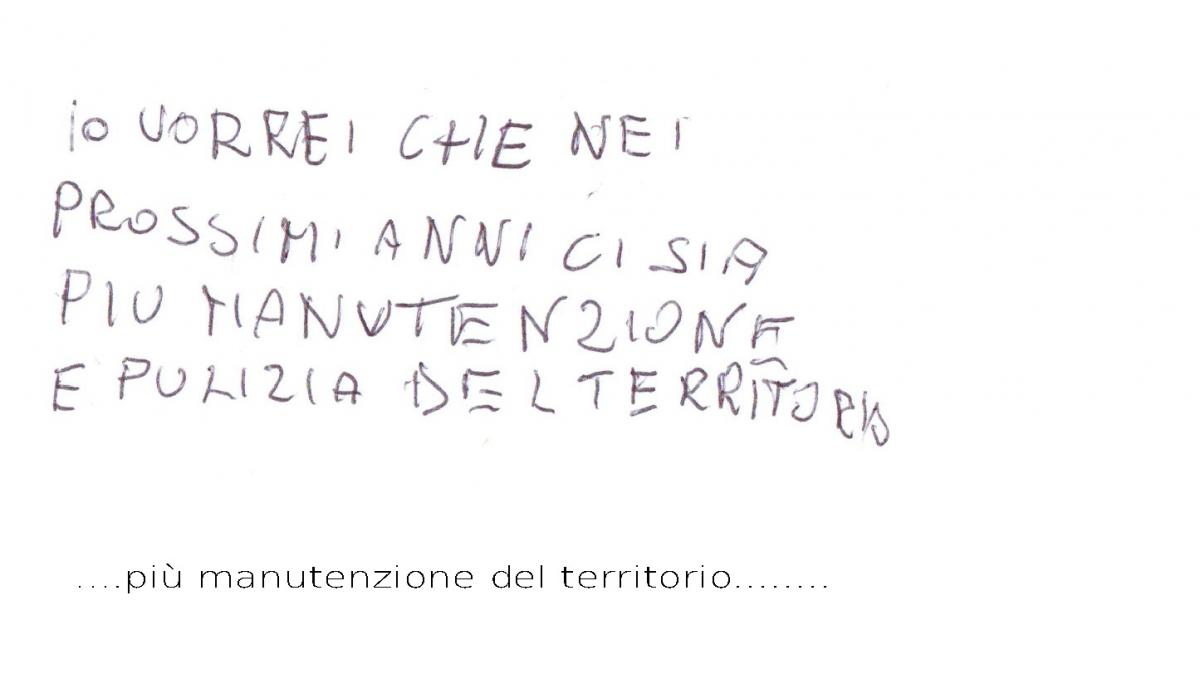 io VORREI CHE NEI
PROSSIMI ANNI CI SIA
PIU MANUTENZIONE
E PULIZIA DEL TERRITORIO
....più manutenzione del territorio........